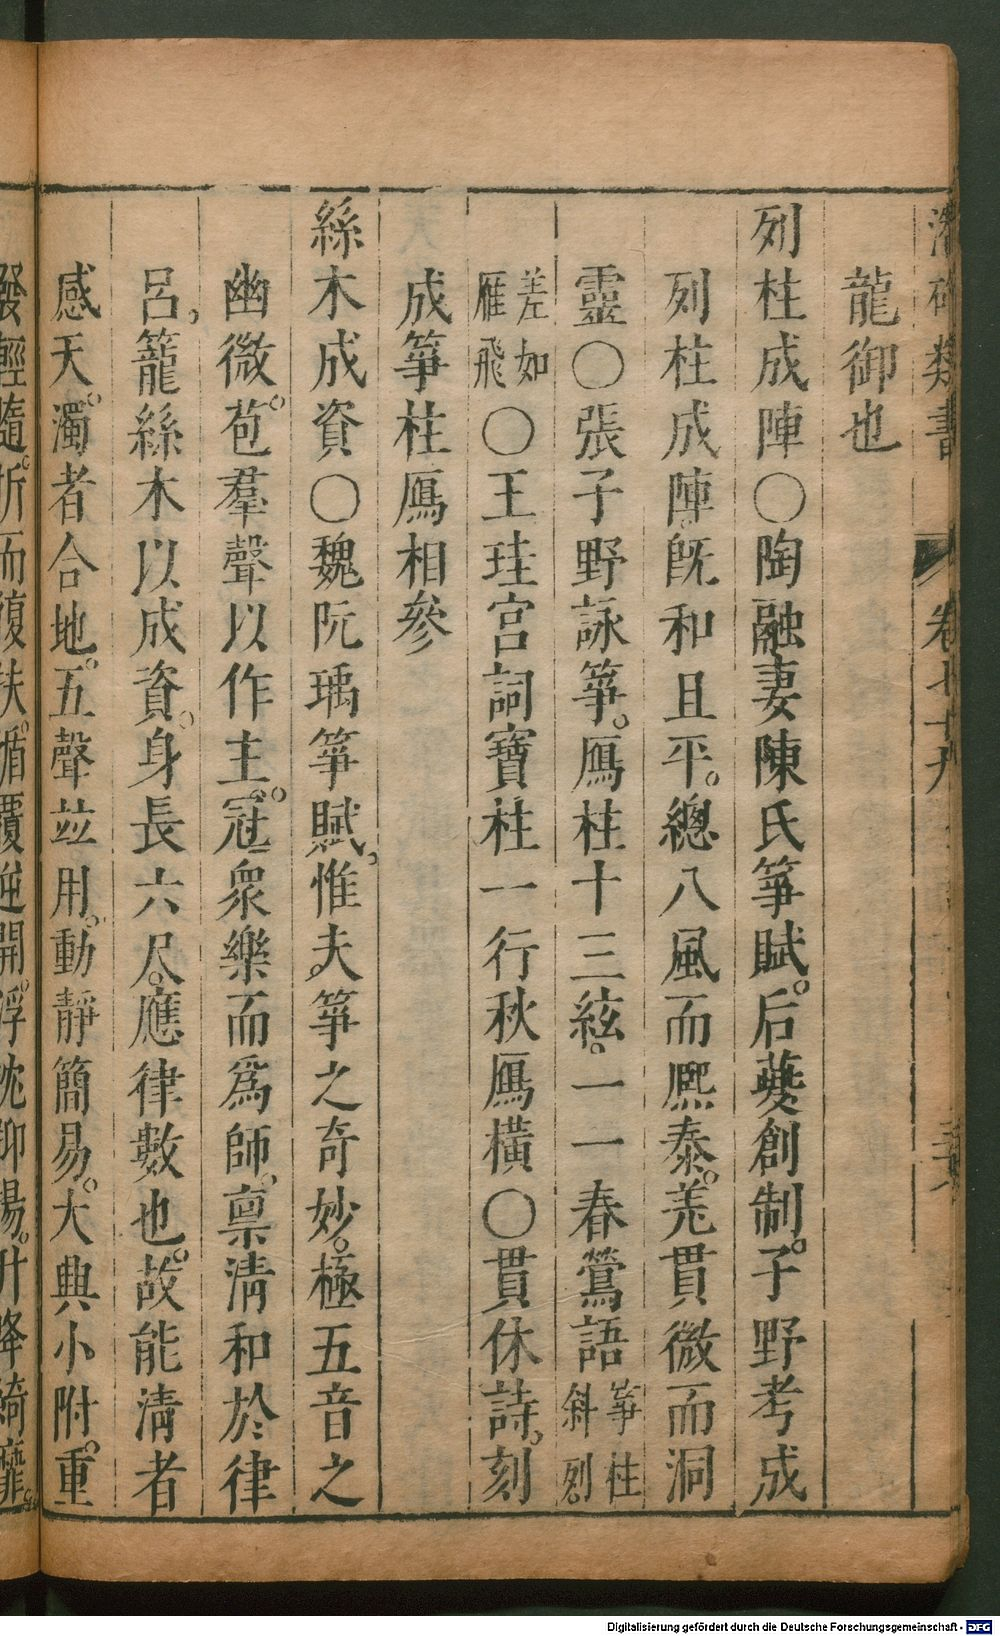 潛確類書 卷七十九
龍御也
列柱成陣〇陶融妻陳氏箏賦。后夔創制。子野考成
列柱成陣。旣和且平。總八風而熙泰。羗貫微而洞
靈〇張子野詠箏。鴈柱十三絃。一一春鶯語 箏柱斜列
差如雁飛 〇王珪宮詞寶柱一行秋鴈橫〇貫休詩。刻
成箏柱鴈相參
絲木成資〇魏阮瑀箏賦。惟夫箏之奇妙。極五音之
幽微。苞羣聲以作主。冠衆樂而爲師。禀淸和於律
呂。籠絲木以成資。身長六尺。應律數也。故能淸者
感天。濁者合地。五聲竝用。動靜簡易。大興小附。重
發輕隨。折而復扶。循覆逆開。浮沈抑揚。升降綺靡。
Digitalisierung gefördert durch die Deutsche Forschungsgemeinschaft - DFG